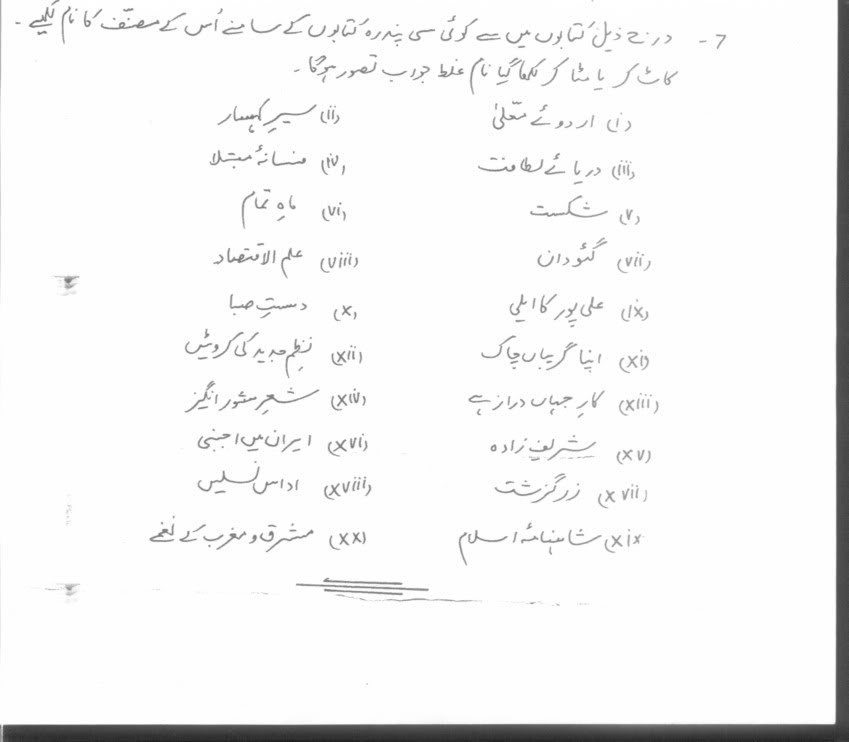 7 - درج ذیل کتابوں میں سے کوئی سی پندرہ کتابوں کے سامنے اُس کے مصنّف کا نام لکھیے ۔
کاٹ کر یا مٹا کر لکھا گیا نام غلط جواب تصور ہوگا ۔
(i) اردوئے معّلیٰ (ii) سیرِ کہسار
(iii) دریائے لطافت (iv) فسانۂ مبتلا
(v) شکست (vi) ماہِ تمام
(vii) گئودان (viii) علم الاقتصاد
(ix) علی پور کا ایلی (x) دستِ صبا
(xi) اپنا گریباں چاک (xii) نظمِ جدید کی کروٹیں
(xiii) کارِ جہاں دراز ہے (xiv) شعرِ شور انگیز
(xv) شریف زادہ (xvi) ایران میں اجنبی
(xvii) زرگزشت (xviii) اداس نسلیں
(xix) شاہنامۂ اسلام (xx) مشرق و مغرب کے نغمے